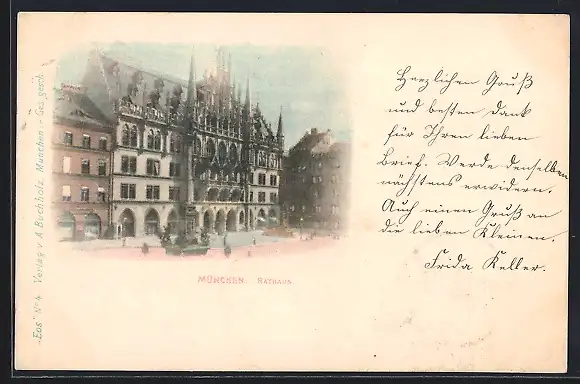 Herzlichen Gruß
und besten Dank
für Ihren lieben
Brief. Werde denselben
nächstens erwidern.
Auch einen Gruß an
die lieben Kleinen.
Frida Keller.
MÜNCHEN. RATHAUS
"Eos" No 4 Verlag v. A. Buchholz, München - Ges. gesch.